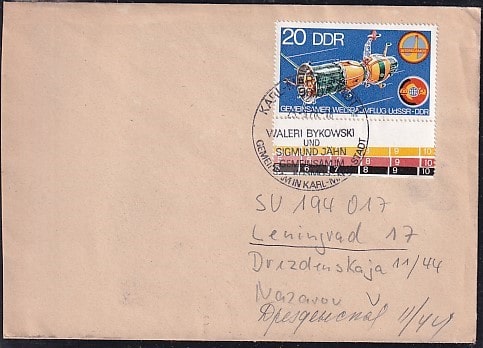 20 DDR
GEMEINSAMER WELTRAUMFLUG UdSSR-DDR
KARL-
WALERI BYKOWSKI
UND
SIGMUND JÄHN
GEMEINSAM IM
GEMEINSAM IN KARL-MARX-STADT
8 9 10
8 9 10
SU 194 017
Leningrad 17
Drezdenskaja 11/44
Nazarov V
11/44